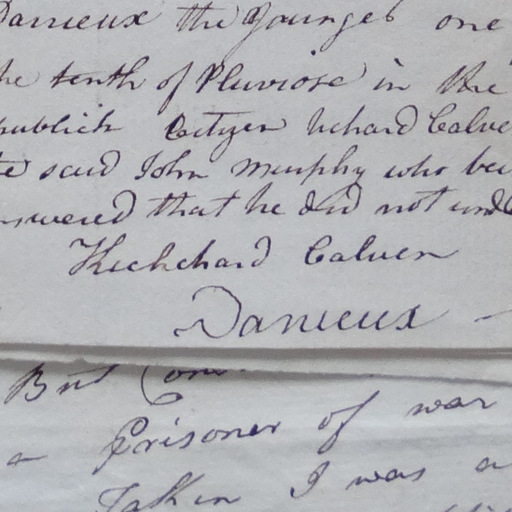 Danieux the Younger one
the tenth of Pluviose in the
publick Cityen Richard Calve
te said John Murphy who bei
nswered that he did not unde
Richchard Calven
Danieux
But Com
a Prisoner of war
Taken I was a